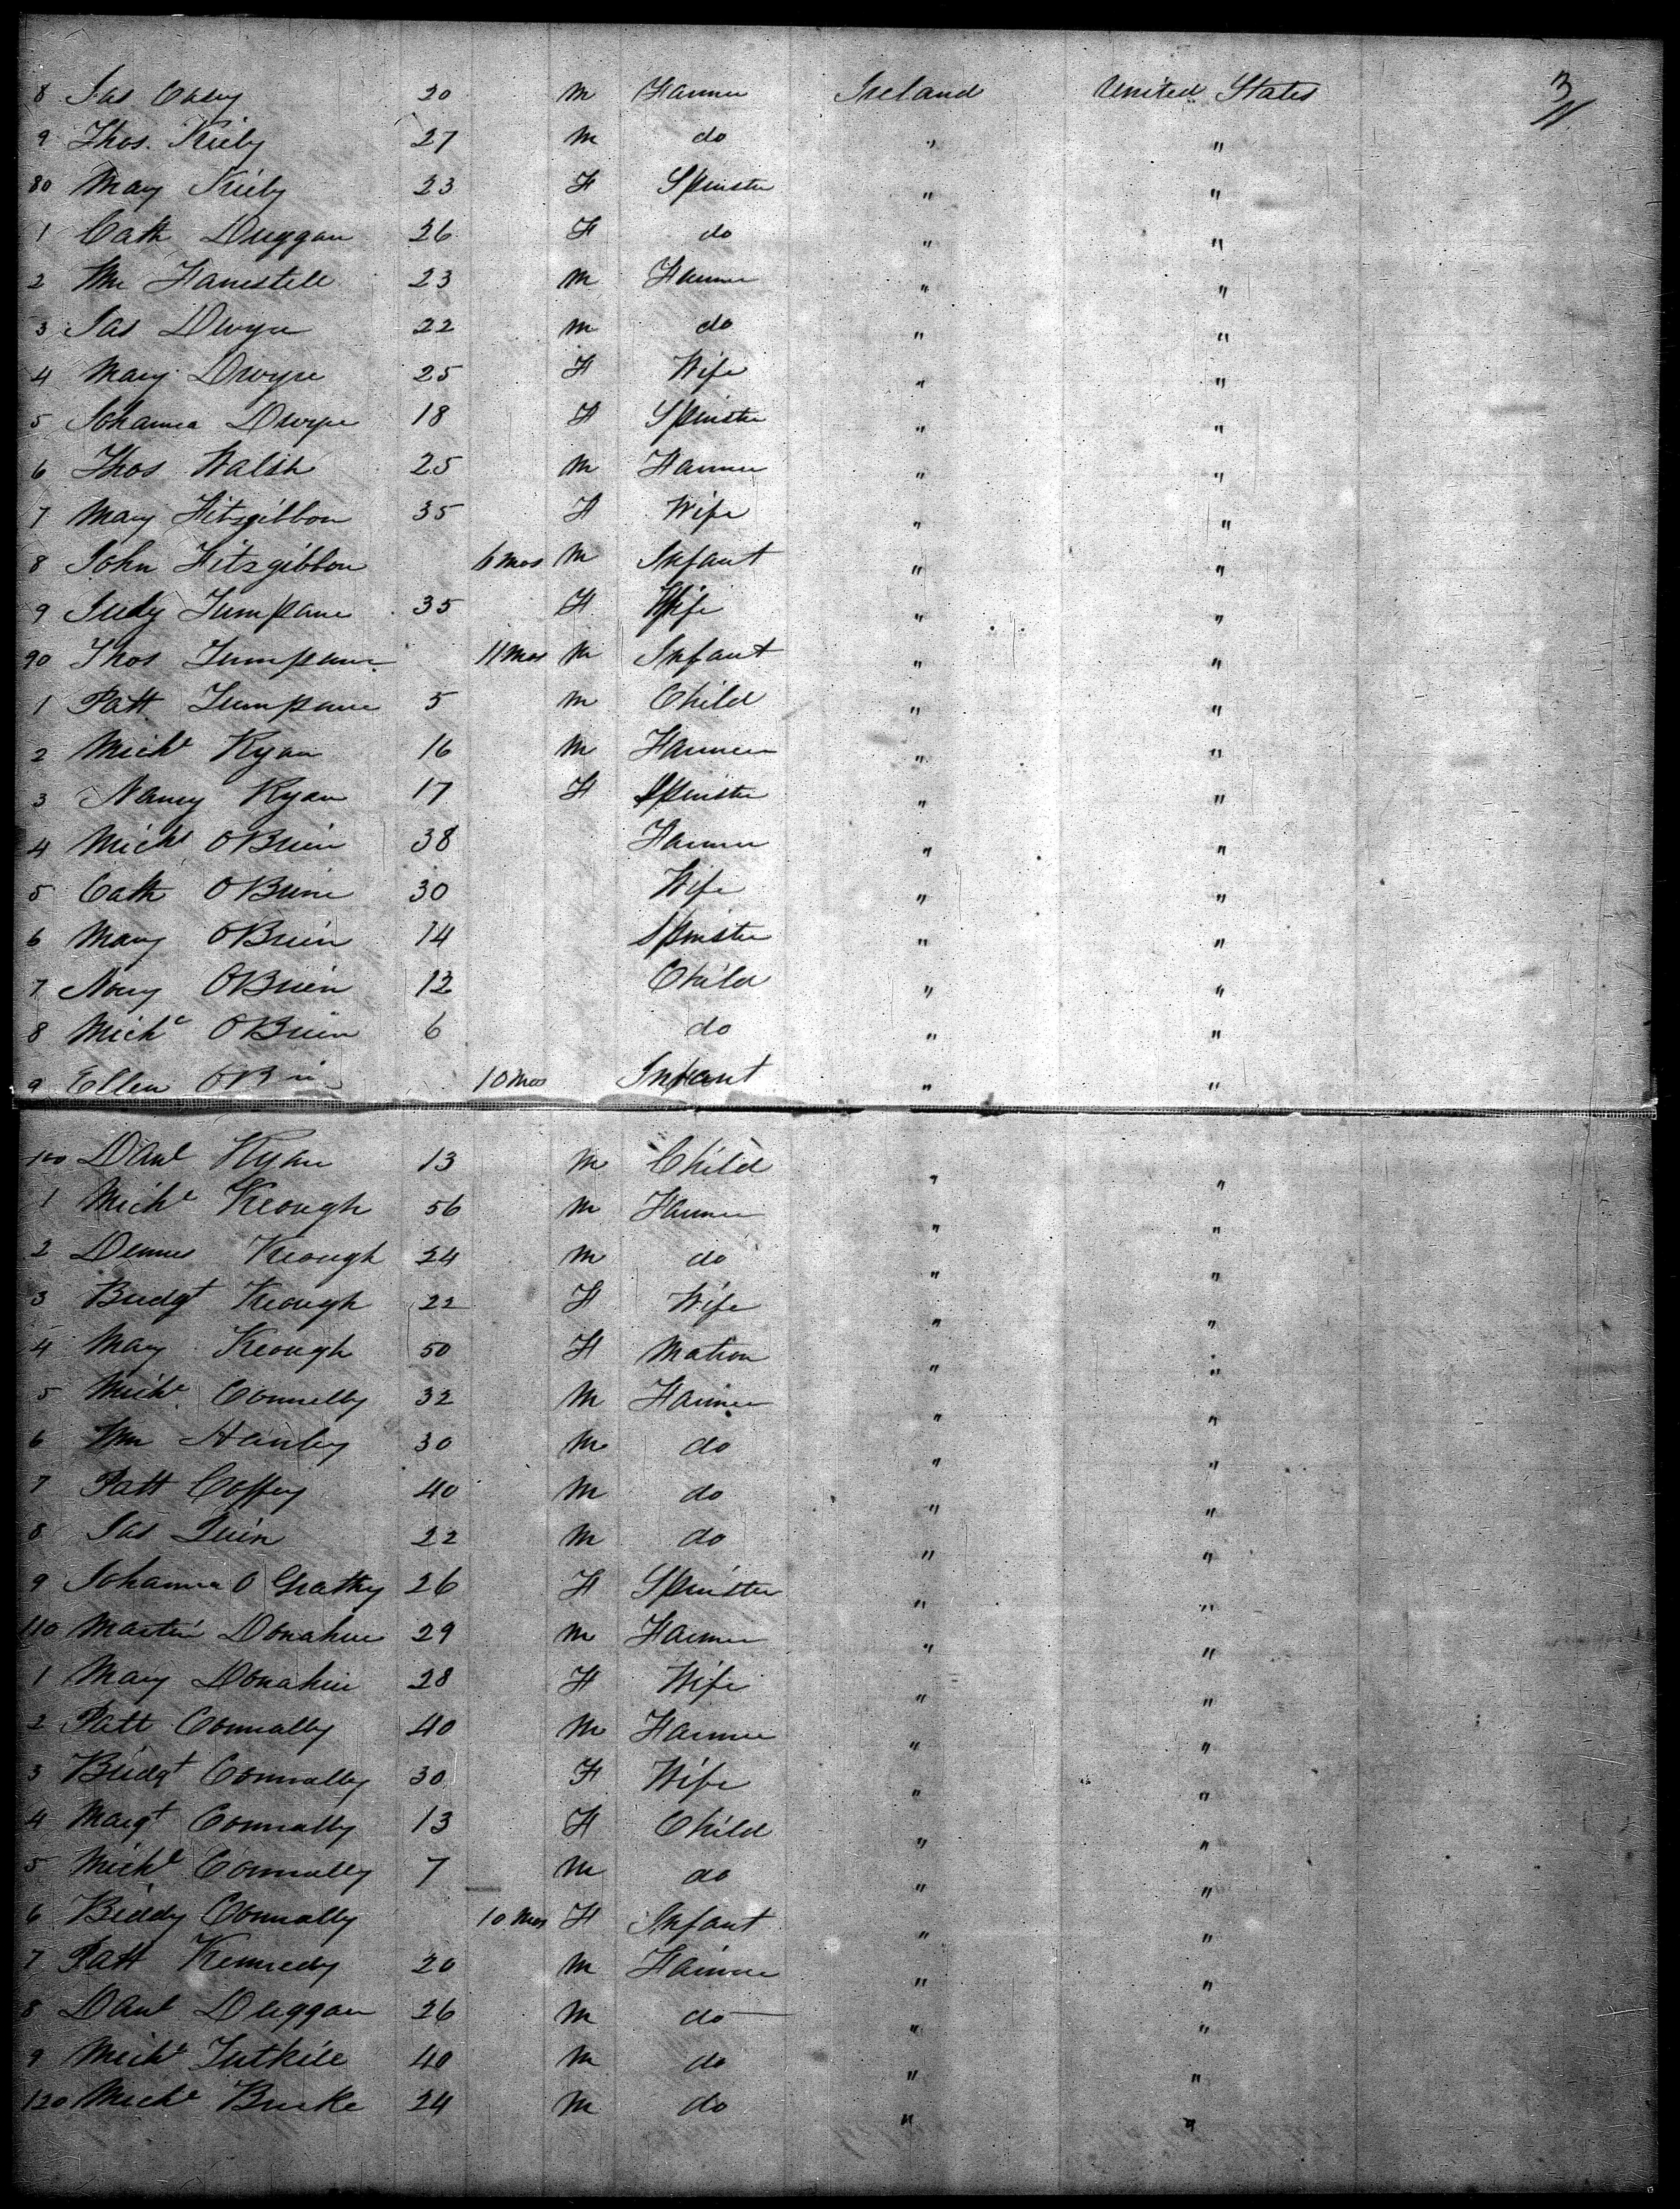 8 Jas Casey 20 M Farmer Ireland United States 3/11
9 Thos. Kirby 27 M do " "
80 Mary Kirby 23 F Spinster " "
1 Cath Duggan 26 F do " "
2 Wm 23 M Farmer " "
3 Jas Dwyer 22 M do " "
4 Mary Dwyre 25 F Wife " "
5 Johanna Dwyre 18 F Spinster " "
6 Thos Walsh 25 M Farmer " "
7 Mary Fitzgibbon 35 F Wife " "
8 John Fitzgibbon 6 Mos M Infant " "
9 Judy Tumpane 35 F Wife " "
90 Thos Tumpane 11 Mos M Infant " "
1 Patt Tumpane 5 M Child " "
2 Michl Ryan 16 M Farmer " "
3 Nancy Ryan 17 F Spinster " "
4 Michl OBrien 38 Farmer " "
5 Cath OBrien 30 Wife " "
6 Mary OBrien 14 Spinster " "
7 Nory OBrien 12 Child " "
8 Michl OBrien 6 do " "
9 Ellen OBrien 10 Mos Infant " "
100 Danl Ryan 13 M Child " "
1 Michl Keough 56 M Farmer " "
2 Dennis Keough 24 M do " "
3 Bridgt Keough 22 F Wife " "
4 Mary Keough 50 F Matron " "
5 Michl Connelly 32 M Farmer " "
6 Wm Hanley 30 M do " "
7 Patt Coffey 40 M do " "
8 Jas Quin 22 M do " "
9 Johanna O 26 F Spinster " "
110 Martin Donahue 29 M Farmer " "
1 Mary Donahue 28 F Wife " "
2 Patt Connally 40 M Farmer " "
3 Bridgt Connally 30 F Wife " "
4 Margt Connally 13 F Child " "
5 Michl Connally 7 M do " "
6 Biddy Connally 10 Mos F Infant " "
7 Patt Kennedy 20 M Farmer " "
8 Danl Duggan 26 M do " "
9 Michl 40 M do " "
120 Michl Burke 24 M do " "